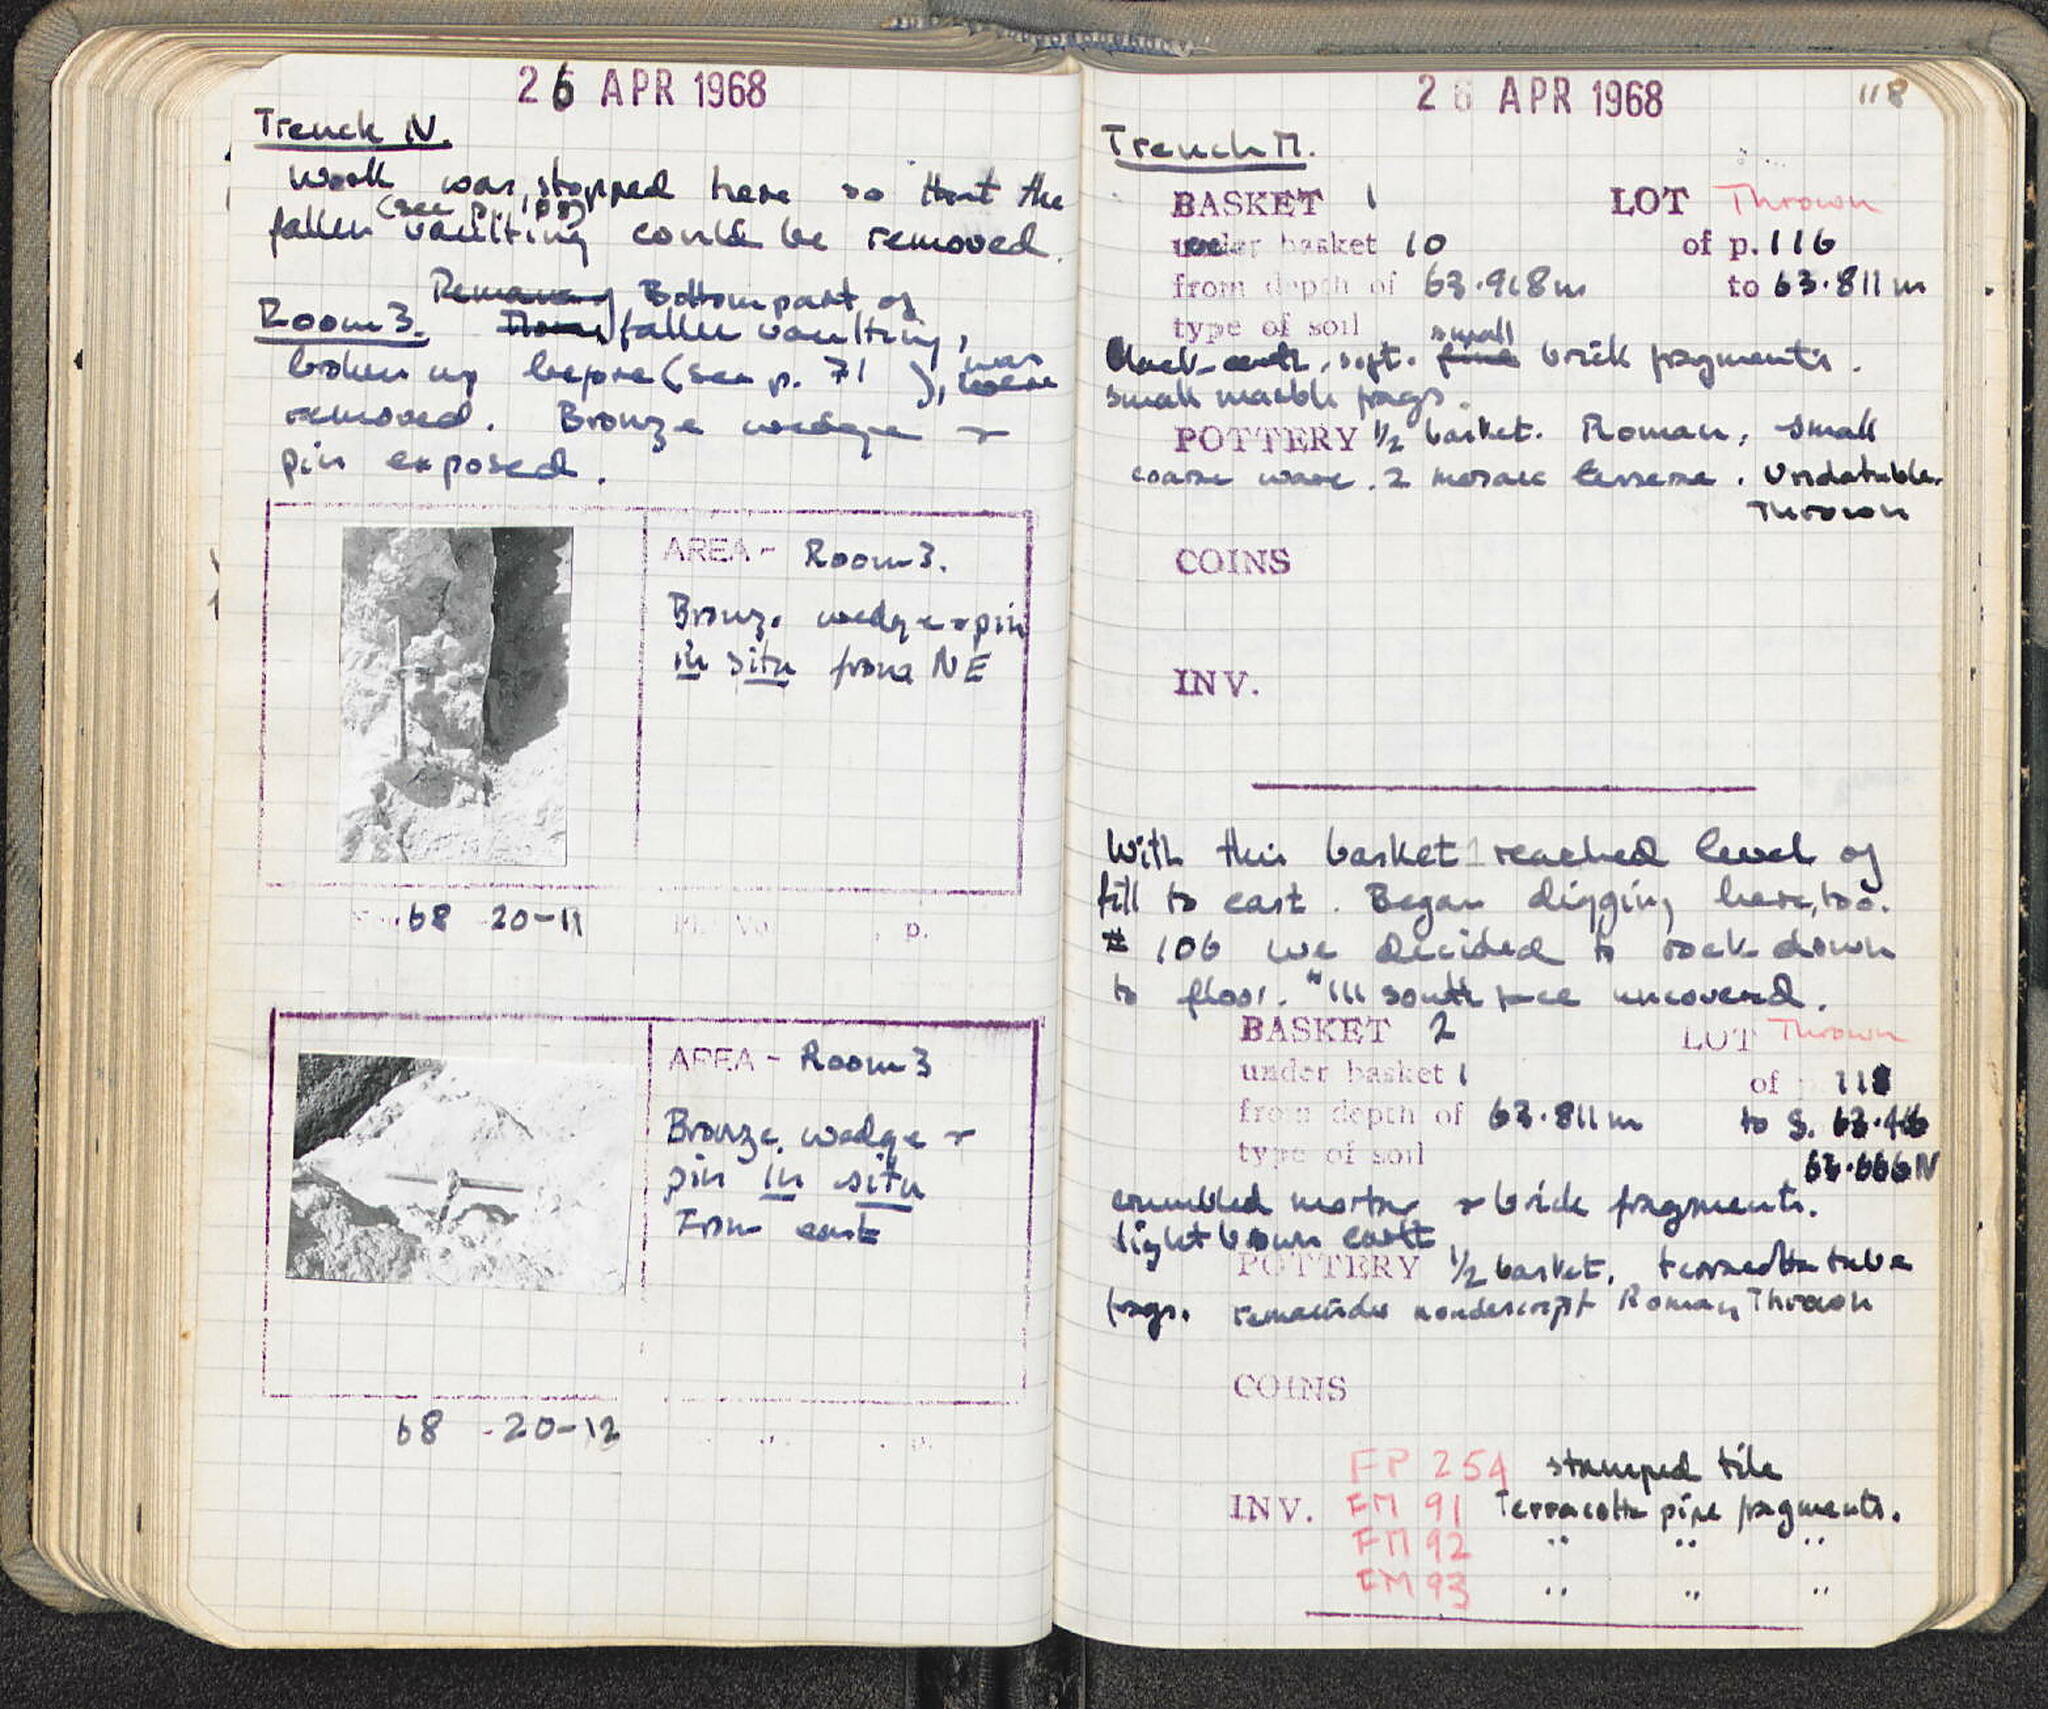 26 APR 1968
Trench IV.
Work was stopped here so that the
(see p. 108)
fallen vaulting could be removed.
Bottom part of
Room 3. fallen vaulting,
broken up before (see p. 71 ), was
removed. Bronze wedge +
pin exposed.
AREA - Room 3.
Bronze wedge + pin
in situ from NE
68 20-11
p.
AREA - Room 3
Bronze wedge +
pin in situ
From east
68 -20-12
26 APR 1968
118
Trench M.
BASKET 1 LOT Thrown
under basket 10 of p. 116
from depth of 63.918m to 63.811m
type of soil
small
black earth, soft. fine brick fragments.
small marble frags.
POTTERY 1/2 basket. Roman, small
coarse ware. 2 mosaic tesserae. Undatable.
Thrown
COINS
INV.
With this basket reached level of
fill to east. Began digging here, too.
# 106 we decided to down
to floor. " 111 south face uncovered.
BASKET 2 LOT Thrown
under basket 1 of 118
from depth of 63.811m to S. 63.416
type of soil 63.666 N
crumbled mortar + brick fragments.
light brown earth
POTTERY 1/2 basket. terracotta tube
frags. remainder nondescript Roman, Thrown
COINS
FP 254 stamped tile
INV. FM 91 Terracotta pipe fragments.
FM 92 " " "
FM 93 " " "